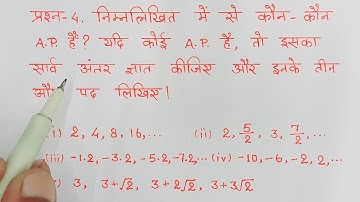 प्रश्न-4. निम्नलिखित में से कौन-कौन
A.P. हैं? यदि कोई A.P. है, तो इसका
सार्व अंतर ज्ञात कीजिए और इनके तीन
और पद लिखिए।
(i) 2, 4, 8, 16, ... (ii) 2, 5/2, 3, 7/2, ...
(iii) -1.2, -3.2, -5.2, -7.2, ... (iv) -10, -6, -2, 2, ...
) 3, 3+√2, 3+2√2, 3+3√2